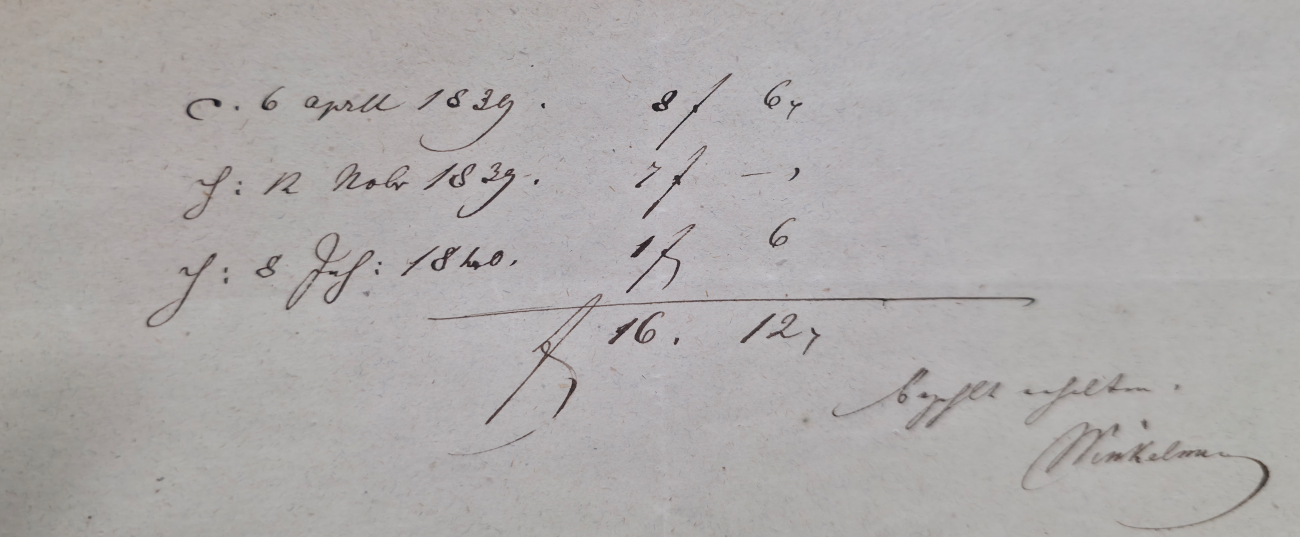 d. 6 aprill 1839. 8 f 6,
d: 12 Nobr 1839. 7 f —,
d: 8 1840. 1 f 6
f 16. 12,
bezahlt erhalten.
Winkelman